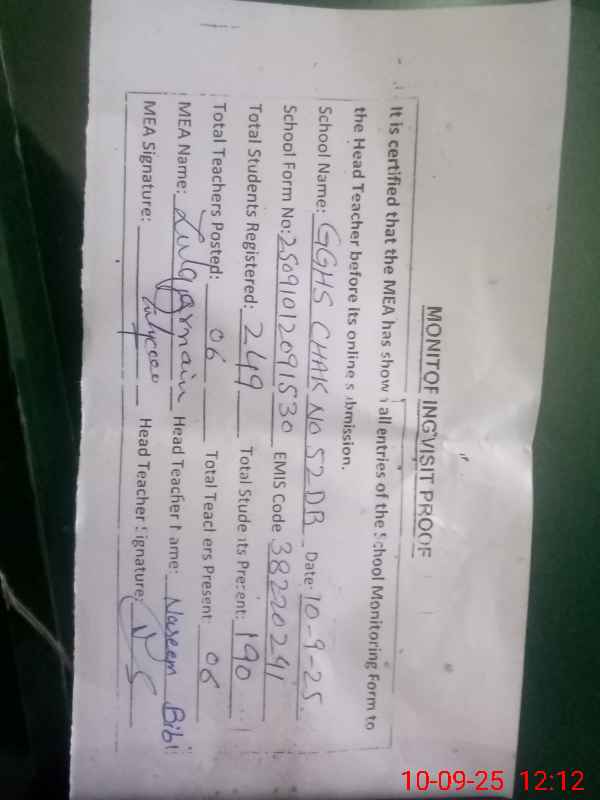 MONITORING VISIT PROOF
It is certified that the MEA has shown all entries of the School Monitoring Form to
the Head Teacher before its online submission.
School Name: GGHS CHAK NO 52 DB Date: 10-9-25.
School Form No: 25091012091530 EMIS Code 38220241
Total Students Registered: 249 Total Students Present: 190
Total Teachers Posted: 06 Total Teachers Present: 06
MEA Name: Zulqarnain Head Teacher Name: Naseem Bibi
MEA Signature: Head Teacher Signature: N S
10-09-25 12:12